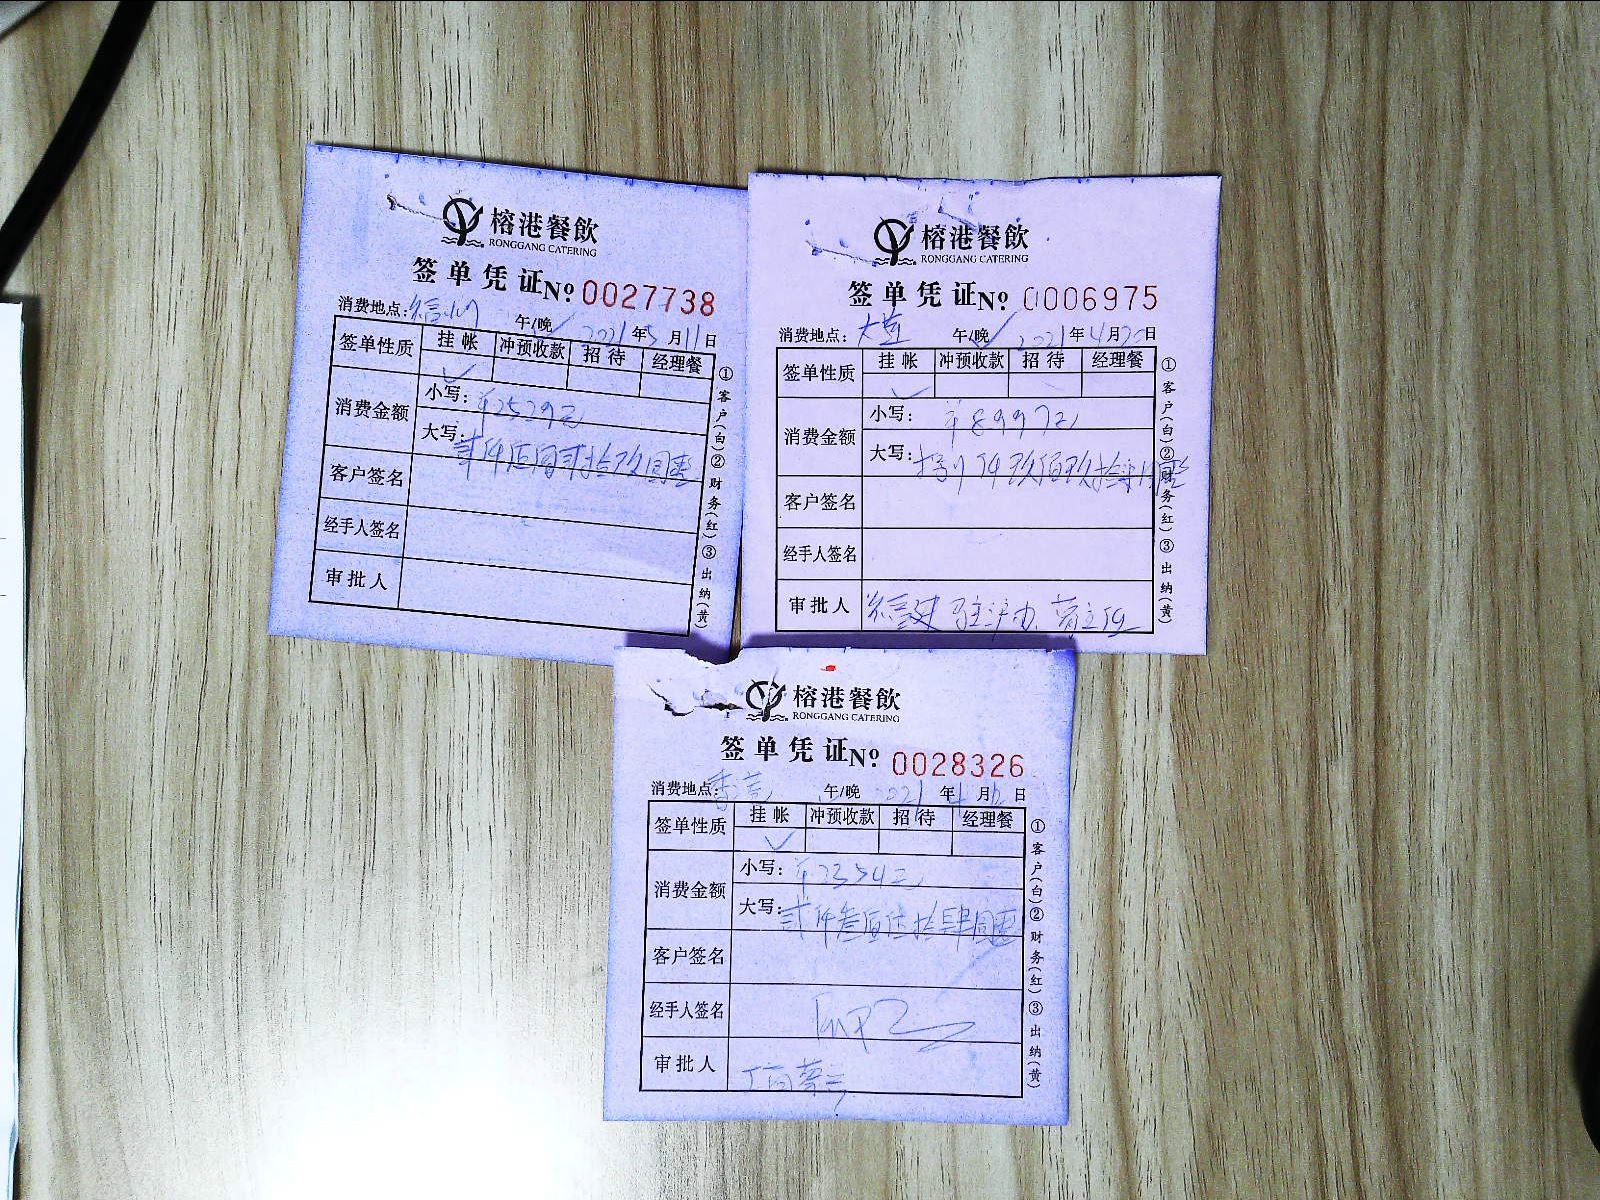 榕港餐飲
RONGGANG CATERING
签单凭证№ 0027738
消费地点: 午/晚 2021年5月11日
签单性质 挂帐 冲预收款 招待 经理餐
消费金额 小写: ¥2529元
大写: 贰仟伍佰贰拾玖圆整
客户签名
经手人签名
审批人
①客户(白)②财务(红)③出纳(黄)
榕港餐飲
RONGGANG CATERING
签单凭证№ 0006975
消费地点: 午/晚 2021年4月20日
签单性质 挂帐 冲预收款 招待 经理餐
消费金额 小写: ¥8997元
大写: 捌仟玖佰玖拾柒圆整
客户签名
经手人签名
审批人 驻沪办
①客户(白)②财务(红)③出纳(黄)
榕港餐飲
RONGGANG CATERING
签单凭证№ 0028326
消费地点: 午/晚 2021年4月 日
签单性质 挂帐 冲预收款 招待 经理餐
消费金额 小写: ¥2354元
大写: 贰仟叁佰伍拾肆圆整
客户签名
经手人签名
审批人
①客户(白)②财务(红)③出纳(黄)